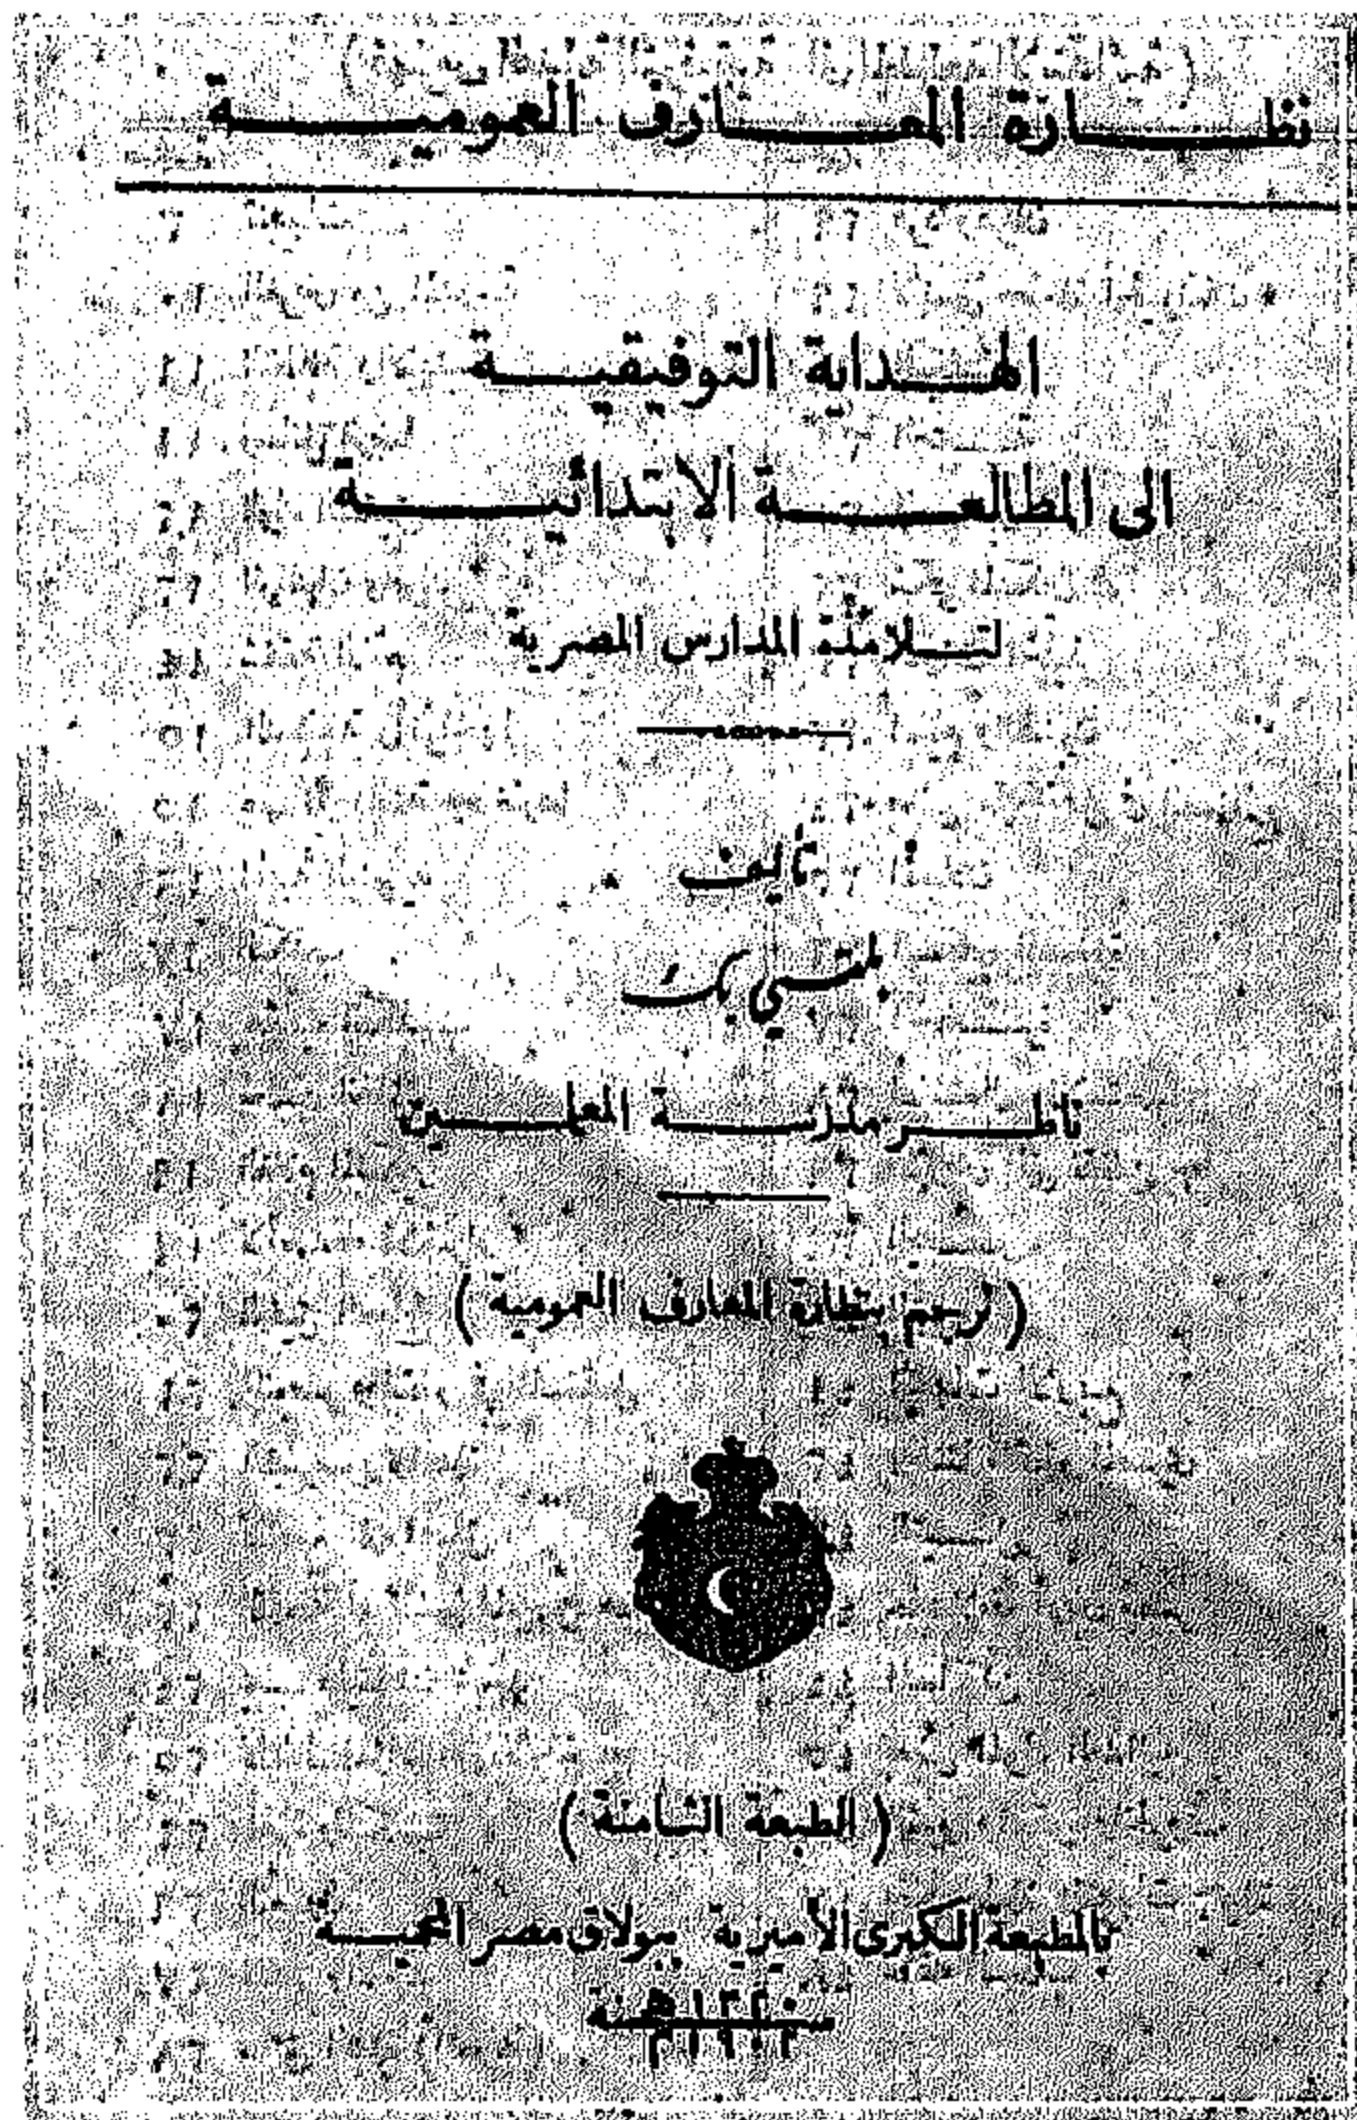 نظارة المعارف العمومية
الهداية التوفيقية
الى المطالعة الابتدائية
لتلامذة المدارس المصرية
تأليف
بلتيي بك
ناظر مدرسة المعلمين
(ترجم بنظارة المعارف العمومية)
(الطبعة الثامنة)
بالمطبعة الكبرى الأميرية ببولاق مصر المحمية
سنة